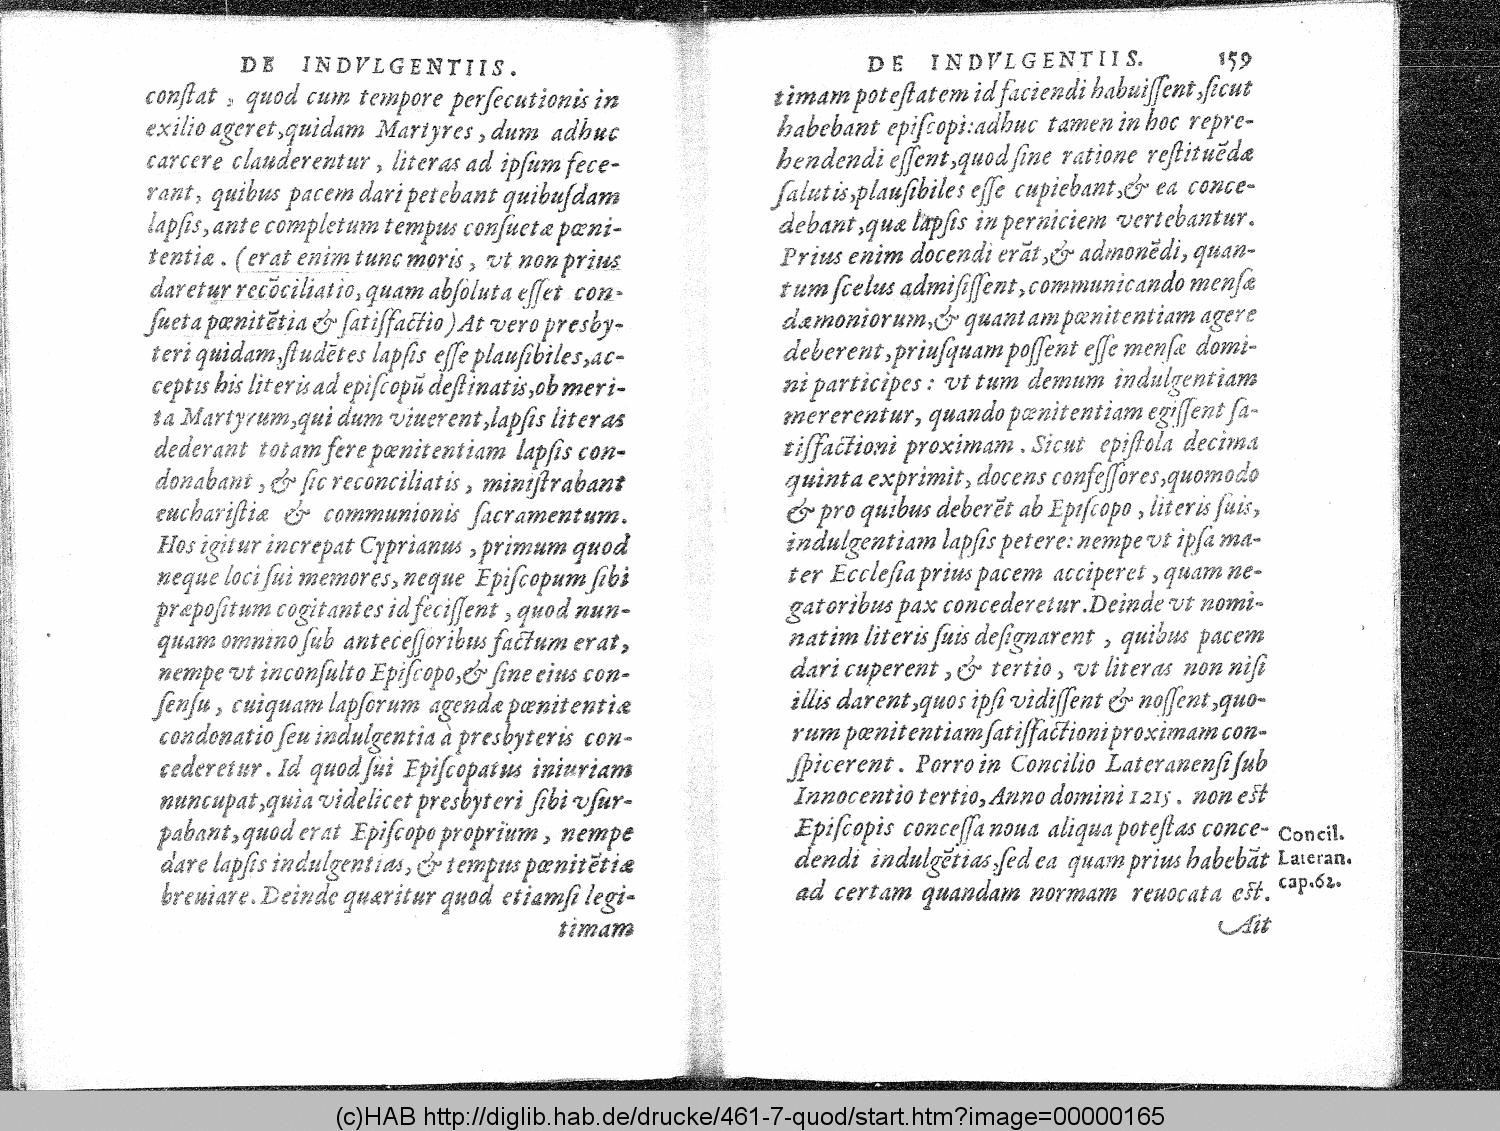 DE INDVLGENTIIS.
conſtat, quod cum tempore perſecutionis in
exilio ageret,quidam Martyres, dum adhuc
carcere clauderentur, literas ad ipſum fece-
rant, quibus pacem dari petebant quibuſdam
lapſis, ante completum tempus conſuetæ pœni-
tentiæ. (erat enim tunc moris, vt non prius
daretur recōciliatio, quam abſoluta eſſet con-
ſueta pœnitētia & ſatiſfactio) At vero presby-
teri quidam,ſtudētes lapſis eſſe plauſibiles,ac-
ceptis his literis ad epiſcopū deſtinatis,ob meri-
ta Martyrum,qui dum viuerent,lapſis literas
dederant totam fere pœnitentiam lapſis con-
donabant, & ſic reconciliatis, miniſtrabant
euchariſtiæ & communionis ſacramentum.
Hos igitur increpat Cyprianus, primum quod
neque loci ſui memores, neque Epiſcopum ſibi
præpoſitum cogitantes id feciſſent, quod nun-
quam omnino ſub anteceſſoribus factum erat,
nempe vt inconſulto Epiſcopo,& ſine eius con-
ſenſu, cuiquam lapſorum agendæ pœnitentiæ
condonatio ſeu indulgentia à presbyteris con-
cederetur. Id quod ſui Epiſcopatus iniuriam
nuncupat,quia videlicet presbyteri ſibi vſur-
pabant,quod erat Epiſcopo proprium, nempe
dare lapſis indulgentias, & tempus pœnitētiæ
breuiare. Deinde quæritur quod etiamſi legi-
timam
DE INDVLGENTIIS. 159
timam poteſtatem id faciendi habuiſſent,ſicut
habebant epiſcopi:adhuc tamen in hoc repre-
hendendi eſſent,quod ſine ratione reſtituēdæ
ſalutis,plauſibiles eſſe cupiebant,& ea conce-
debant,quæ lapſis in perniciem vertebantur.
Prius enim docendi erāt,& admonēdi, quan-
tum ſcelus admiſiſſent, communicando menſæ
dæmoniorum,& quantam pœnitentiam agere
deberent,priuſquam poſſent eſſe menſæ domi-
ni participes: vt tum demum indulgentiam
mererentur, quando pœnitentiam egiſſent ſa-
tiſfactioni proximam. Sicut epiſtola decima
quinta exprimit, docens confeſſores,quomodo
& pro quibus deberēt ab Epiſcopo, literis ſuis,
indulgentiam lapſis petere: nempe vt ipſa ma-
ter Eccleſia prius pacem acciperet, quam ne-
gatoribus pax concederetur. Deinde vt nomi-
natim literis ſuis deſignarent, quibus pacem
dari cuperent, & tertio, vt literas non niſi
illis darent,quos ipſi vidiſſent & noſſent,quo-
rum pœnitentiam ſatiſfactioni proximam con-
ſpicerent. Porro in Concilio Lateranenſi ſub
Innocentio tertio, Anno domini 1215. non eſt
Epiſcopis conceſſa noua aliqua poteſtas conce-
dendi indulgētias,ſed ea quam prius habebāt
ad certam quandam normam reuocata eſt.
Concil.
Lateran.
cap.62.
Ait
(c)HAB http://diglib.hab.de/drucke/461-7-quod/start.htm?image=00000165